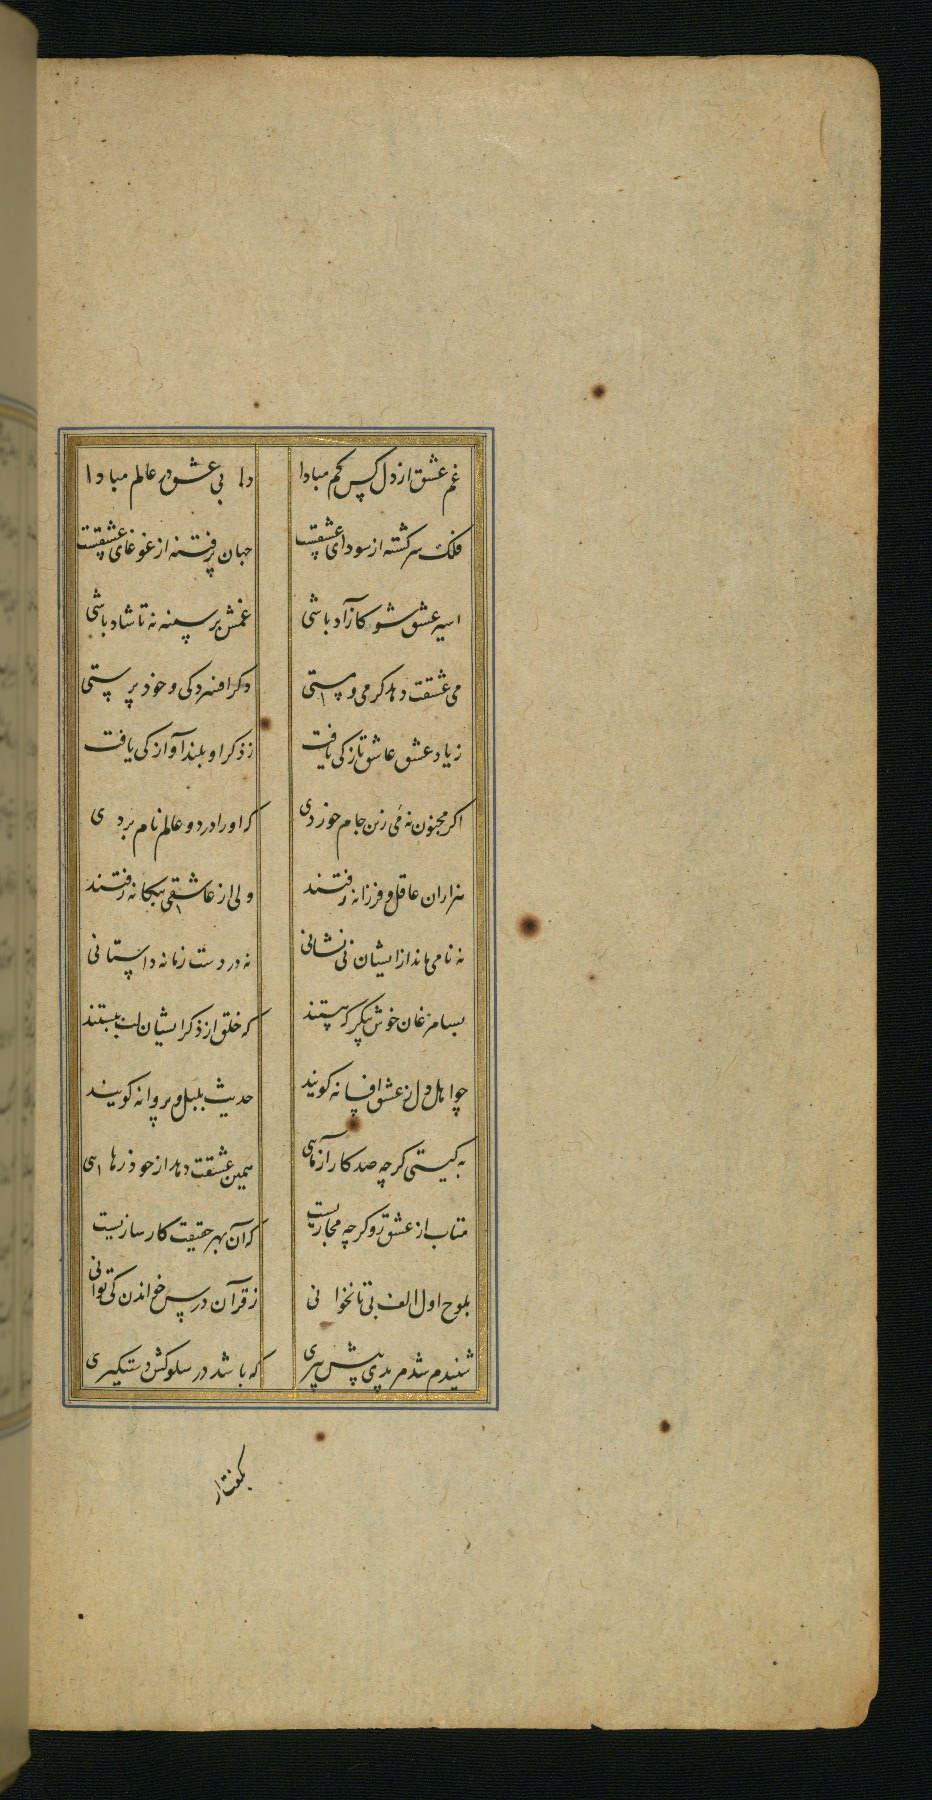 غم عشق از دل کس کم مبادا دل بی عشق در عالم مبادا
فلک سرکشته از سودای عشقست جهان پرفتنه از غوغای عشقست
اسیر عشق شو کازاد باشی غمش بر سینه نه تا شاد باشی
می عشقت دهد کرمی و مستی دکر افسردکی و خود پرستی
ز یاد عشق عاشق تازکی یافت ز ذکر او بلند آوازکی یافت
اکر مجنون نه می زین جام خوردی که او را در دو عالم نام بردی
هزاران عاقل و فرزانه رفتند ولی از عاشقی بیکانه رفتند
نه نامی ماند از ایشان نی نشانی نه در دست زمانه داستانی
بسا مرغان خوش پیکر که هستند که خلق از ذکر ایشان لب ببستند
چو اهل دل ز عشق افسانه کویند حدیث بلبل و پروانه کویند
به کیتی کرچه صد کار آزمایی همین عشقت دهد از خود رهایی
متاب از عشق رو کرچه مجازیست که آن بهر حقیقت کارسازیست
بلوح اول الف بی تا نخوانی ز قرآن درس خواندن کی توانی
شنیدم شد مریدی پیش پیری که باشد در سلوکش دستکیری
بکفتار